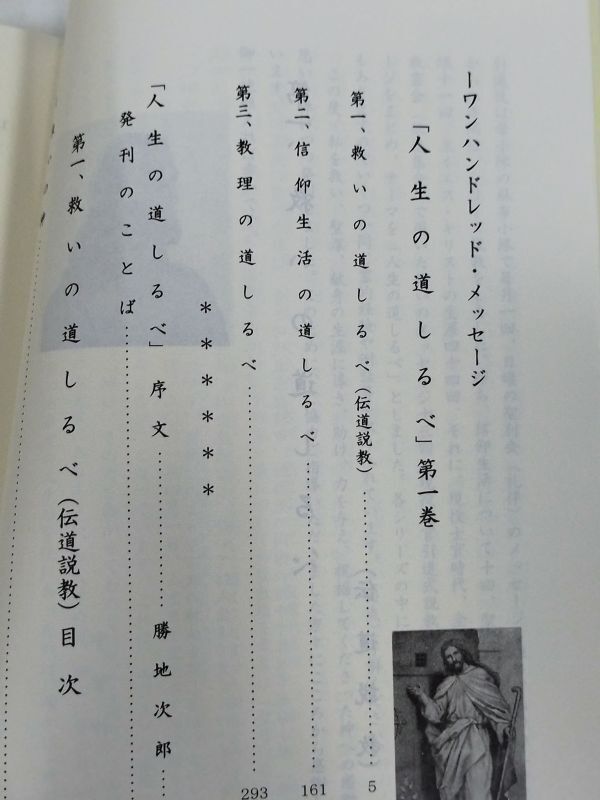 ーワンハンドレッド・メッセージ
「人生の道しるべ」第一巻
第一、救いの道しるべ（伝道説教）…………5
第二、信仰生活の道しるべ…………161
第三、教理の道しるべ…………293
＊＊＊＊＊＊
「人生の道しるべ」序文…………勝地次郎…
発刊のことば…………
第一、救いの道しるべ（伝道説教）目次